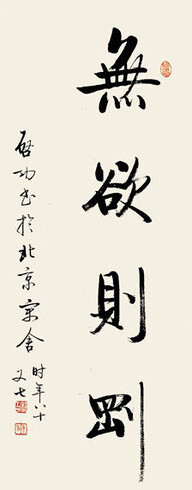 無欲則剛
启功书於北京寓舍
时年八十
又七